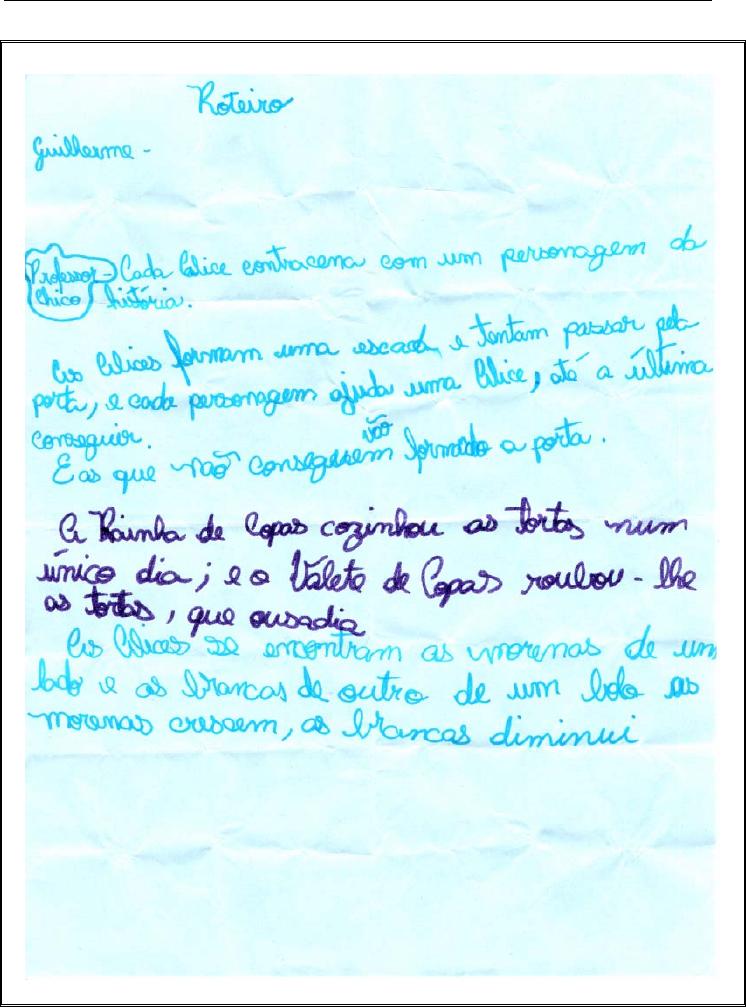 Roteiro
Guilherme -
Professor - Cada Alice contracena com um personagem da
Chico história.
As Alices formam uma escada, e tentam passar pela
porta, e cada personagem ajuda uma Alice, até a última
conseguir.
vão
E as que não conseguem formado a porta.
A Rainha de Copas cozinhou as tortas num
único dia; e o Valete de Copas roubou - lhe
as tortas, que ousadia
As Alices se encontram as morenas de um
lado e as brancas de outro de um bolo as
morenas crescem, as brancas diminui